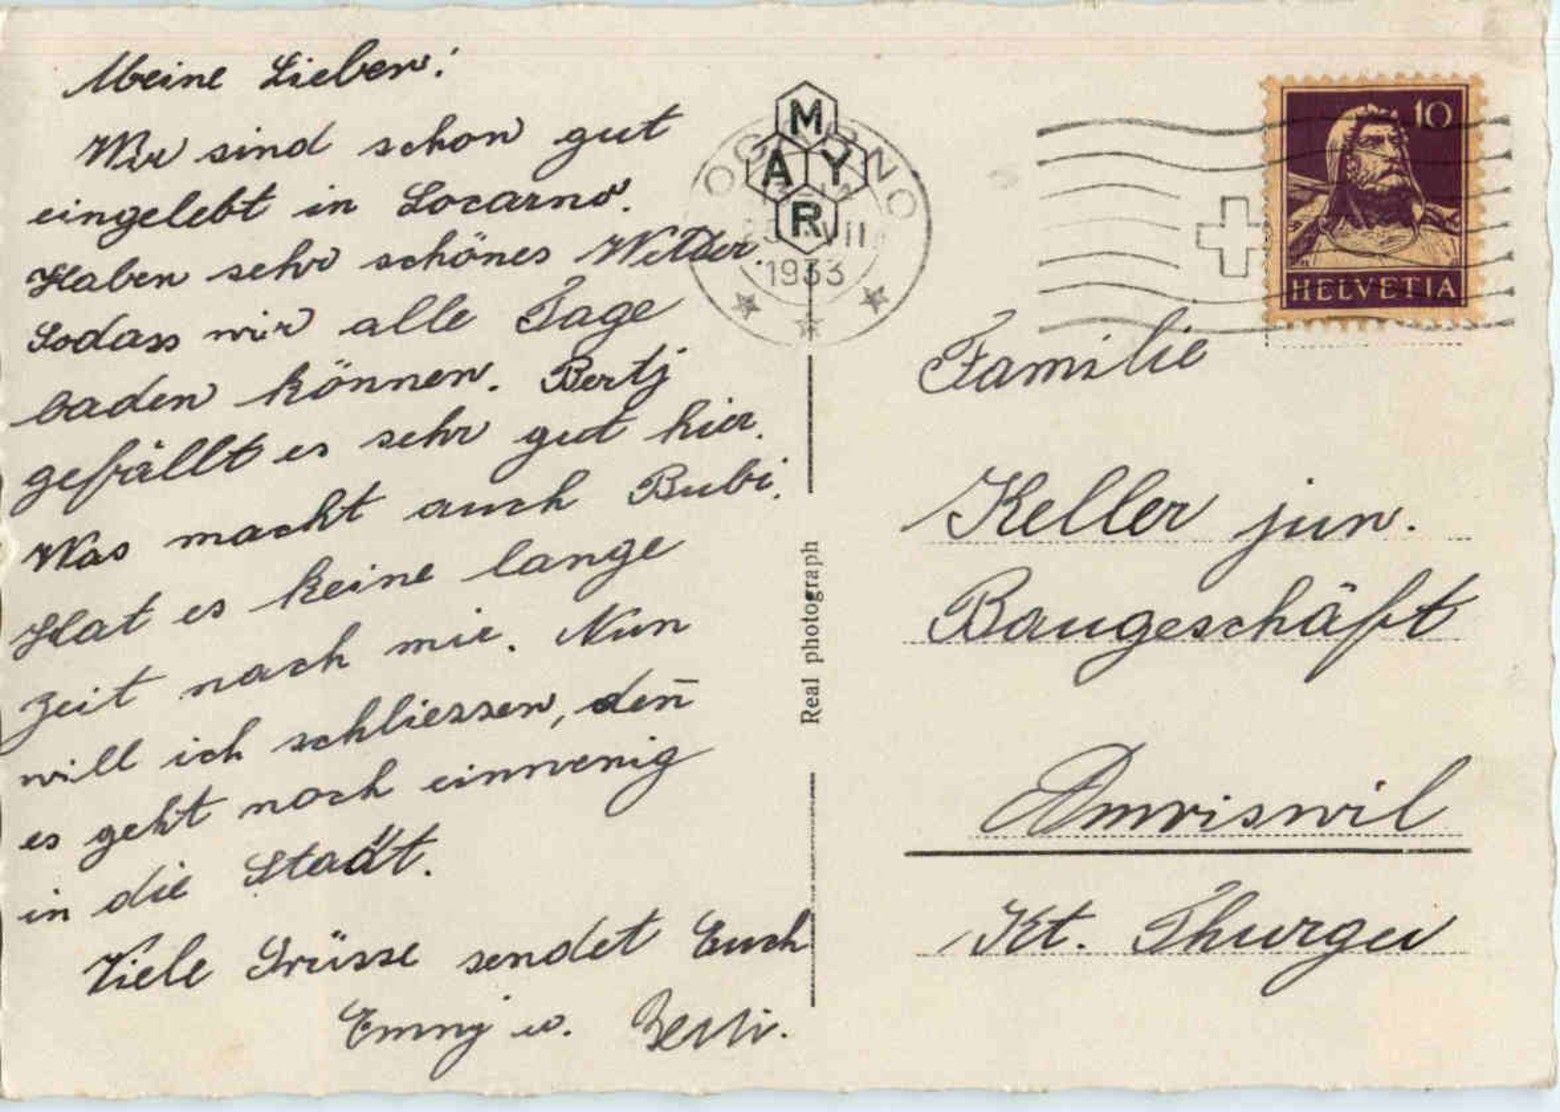 Meine Lieben!
Wir sind schon gut
eingelebt in Locarno.
Haben sehr schönes Wetter.
Sodass wir alle Tage
baden können. Bertj
gefällt es sehr gut hier.
Was macht auch Bubi.
Hat es keine lange
Zeit nach mir. Nun
will ich schliessen, den̄
es geht noch einwenig
in die Stadt.
Viele Grüsse sendet Euch
Emmy u. Berti.
MAYR
LOCARNO
VII
1933
Real photograph
10
HELVETIA
Familie
Keller jun.
Baugeschäft
Amriswil
Kt. Thurgau